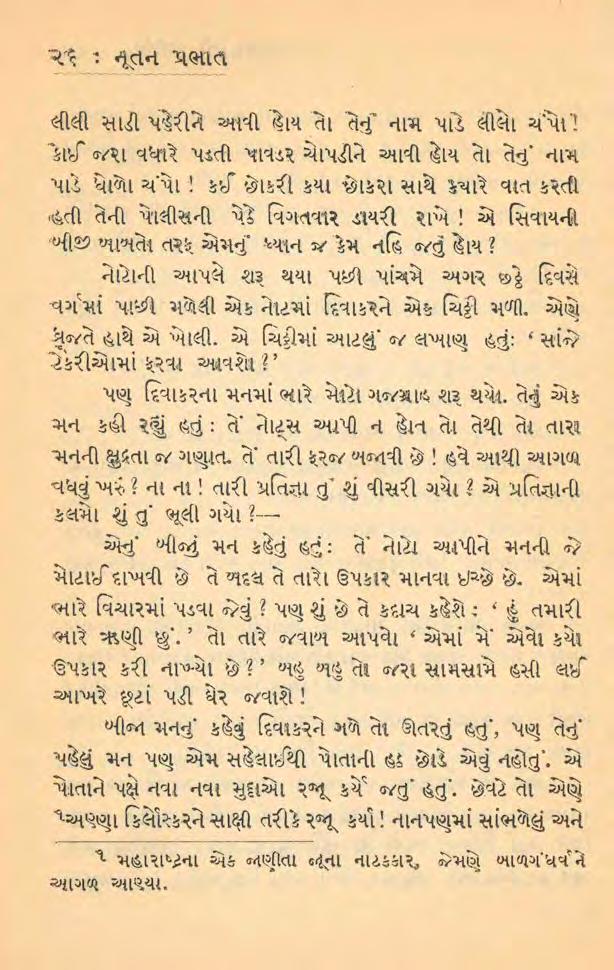 ૨૬ : નૂતન પ્રભાત
લીલી સાડી પહેરીને આવી હોય તો તેનું નામ પાડે લીલો ચંપો !
કોઈ જરા વધારે પડતી પાવડર ચોપડીને આવી હોય તો તેનું નામ
પાડે ધોળો ચંપો ! કઈ છોકરી કયા છોકરા સાથે ક્યારે વાત કરતી
હતી તેની પોલીસની પેઠે વિગતવાર ડાયરી રાખે ! એ સિવાયની
બીજી બાબતો તરફ એમનું ધ્યાન જ કેમ નહિ જતું હોય ?
નોટોની આપલે શરૂ થયા પછી પાંચમે અગર છઠ્ઠે દિવસે
વર્ગમાં પાછી મળેલી એક નોટમાં દિવાકરને એક ચિઠ્ઠી મળી. એણે
ધ્રુજતે હાથે એ ખોલી. એ ચિઠ્ઠીમાં આટલું જ લખાણ હતું: ‘ સાંજે
ટેકરીઓમાં ફરવા આવશો ?’
પણ દિવાકરના મનમાં ભારે મોટો ગજગ્રાહ શરૂ થયો. તેનું એક
મન કહી રહ્યું હતું : તેં નોટ્સ આપી ન હોત તો તેથી તો તારા
મનની ક્ષુદ્રતા જ ગણાત. તેં તારી ફરજ બજાવી છે ! હવે આથી આગળ
વધવું ખરું ? ના ના ! તારી પ્રતિજ્ઞા તું શું વીસરી ગયો ? એ પ્રતિજ્ઞાની
કલમો શું તું ભૂલી ગયો ?—
એનું બીજું મન કહેતું હતું : તેં નોટો આપીને મનની જે
મોટાઈ દાખવી છે તે બદલ તે તારો ઉપકાર માનવા ઇચ્છે છે. એમાં
ભારે વિચારમાં પડવા જેવું ? પણ શું છે તે કદાચ કહેશે : ‘ હું તમારી
ભારે ઋણી છું.’ તો તારે જવાબ આપવો ‘ એમાં મેં એવો કયો
ઉપકાર કરી નાખ્યો છે ?’ બહુ બહુ તો જરા સામસામે હસી લઈ
આખરે છૂટાં પડી ઘેર જવાશે !
બીજા મનનું કહેવું દિવાકરને ગળે તો ઊતરતું હતું, પણ તેનું
પહેલું મન પણ એમ સહેલાઈથી પોતાની હઠ છોડે એવું નહોતું. એ
પોતાને પક્ષે નવા નવા મુદ્દાઓ રજૂ કર્યે જતું હતું. છેવટે તો એણે
૧અણ્ણા કિર્લોસ્કરને સાક્ષી તરીકે રજૂ કર્યા ! નાનપણમાં સાંભળેલું અને
૧ મહારાષ્ટ્રના એક જાણીતા જૂના નાટકકાર, જેમણે બાળગંધર્વને
આગળ આણ્યા.